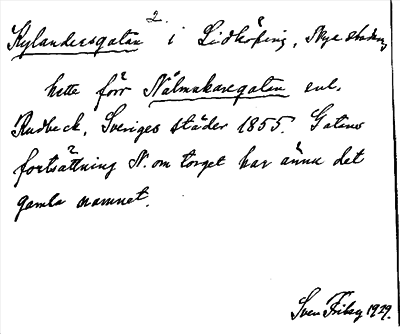 2.
Kylandersgatan i Lidköping, Nya staden,
hette förr Nålmakaregatan enl.
Rudbeck, Sveriges städer 1855. Gatans
fortsättning N. om torget har ännu det
gamla namnet.
Sven Friberg 1929.